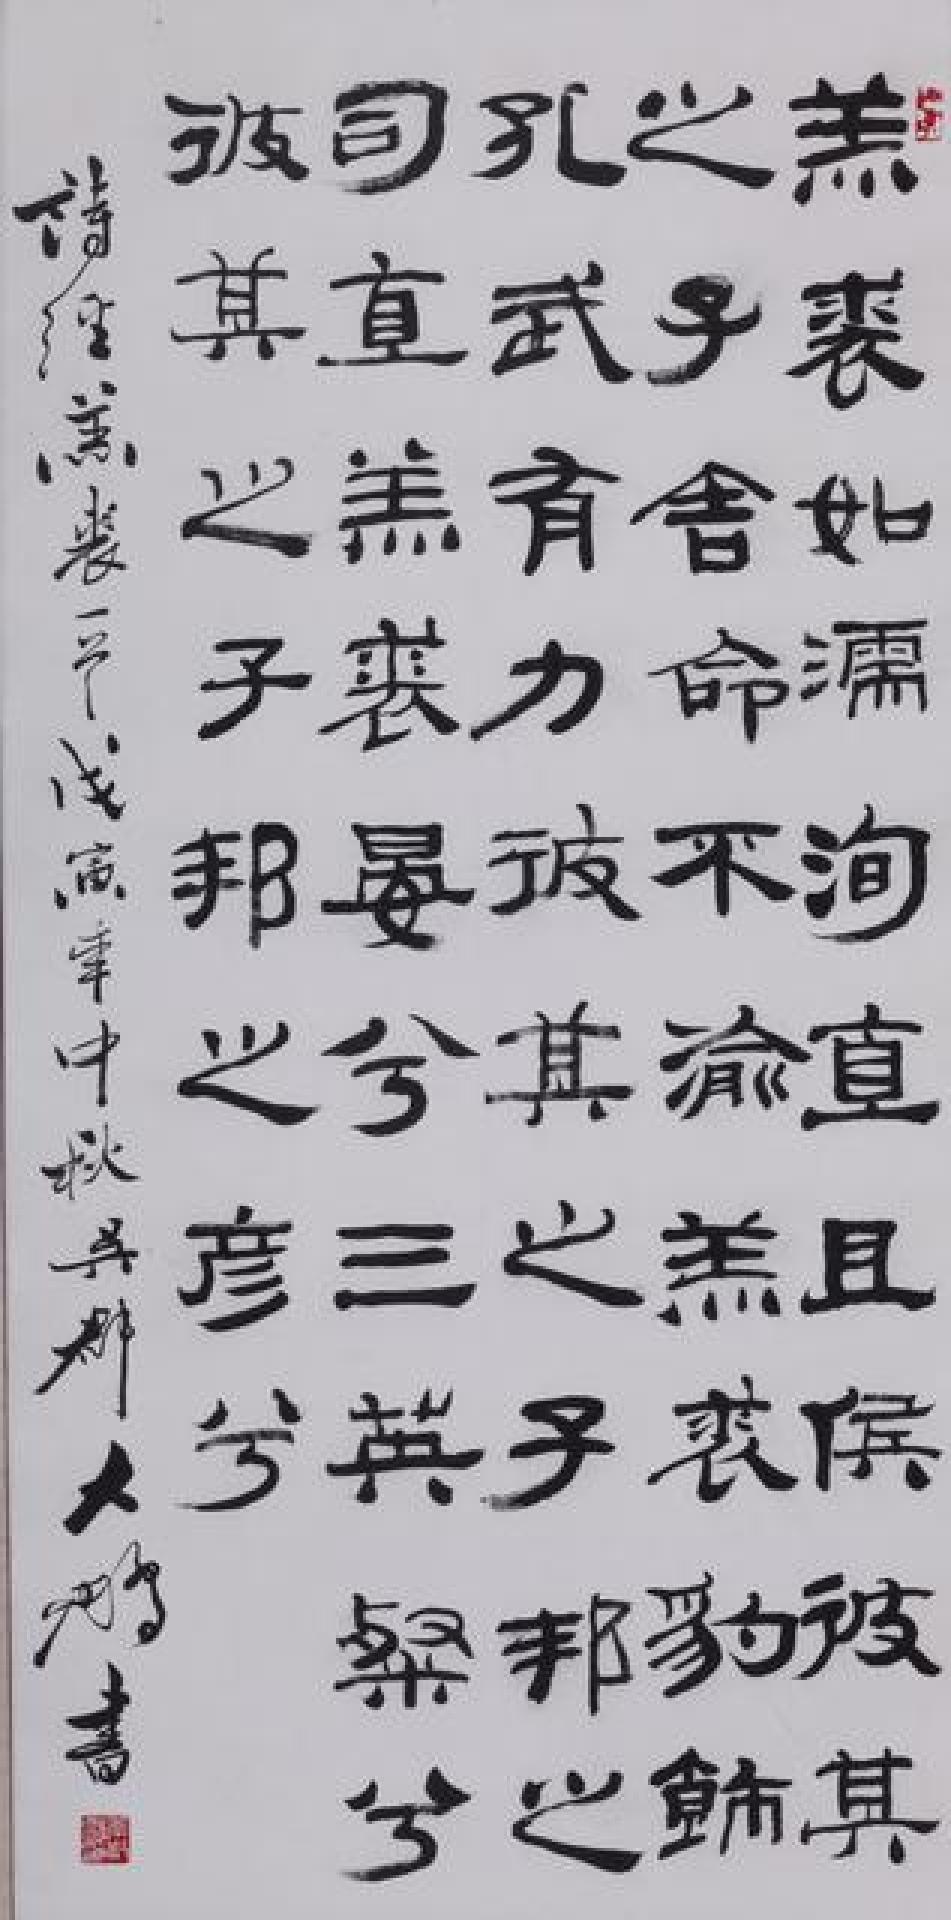 羔裘如濡洵直且侯彼其
之子舍命不渝羔裘豹飾
孔武有力彼其之子邦之
司直羔裘晏兮三英粲兮
彼其之子邦之彦兮
詩經羔裘一章戊寅年中秋吳郡大鵬書